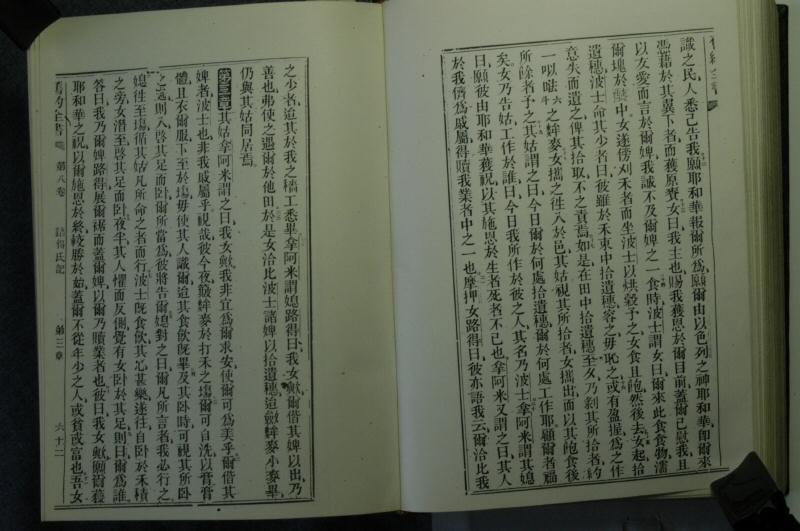 識之民人悉己告我願耶和華報爾所爲願爾由以色列之神耶和華卽爾來
憑藉於其翼下者而獲原賚女曰我主也賜我獲恩於爾目前蓋爾己慰我且
以友愛而言於爾婢我誠不及爾婢之一食時波士謂女曰爾來此食食物濡
爾塊於醯中女遂傍刈禾者而坐波士以烘穀予之女食且飽然後去女起拾
遺穗波士命其少者曰彼雖於禾束中拾遺穗容之毋恥之或有盈握爲之作
意失而遺之俾其拾取不之責焉如是在田中拾遺穗至夕乃剝其所拾者約
一以㖔六斗之麰麥女攜之徃入於邑其姑視其所拾者女攜出而以其飽食後
所餘者予之其姑謂之曰今日爾於何處拾遺穗爾於何處工作耶顧爾者福
矣女乃告姑工作於誰曰今日我所作於彼之人其名乃波士拿阿米謂其媳
曰願彼由耶和華獲祝以其施恩於生者死者不已也拿阿米又謂之曰其人
於我儕爲戚屬得贖我業者中之一也摩押女路得曰彼亦語我云爾洽比我
之少者迨其於我之穡工悉畢拿阿米謂媳路得曰我女歟爾偕其婢以出乃
善也弗使之遇爾於他田於是女洽比波士諸婢以拾遺穗迨斂麰麥小麥畢
仍與其姑同居焉
第三章其姑拿阿米謂之曰我女歟我非宜爲爾求安使爾可爲美乎爾偕其
婢者波士也非我戚屬乎視哉彼今夜簸麰麥於打禾之塲爾可自洗以膏膏
體且衣爾服下至於塲毋使其人識爾迨其食飲旣畢及其卧時可視其所卧
之處則入啓其足而卧爾所當爲彼將告爾媳對之曰爾凡所言者我必行之
媳徃至塲循其姑凡所命之者而行波士旣食飲其心甚樂遂往自卧於禾積
之旁女潛至啓其足而卧夜半其人懼而反側覺有女卧於其足則曰爾爲誰
答曰我乃爾婢路得展爾裾而蓋爾婢以爾乃贖業者也彼曰我女歟願爾獲
耶和華之祝以爾施恩於終較勝於始蓋爾不從年少之人或貧或富也吾女
舊約全書 第八卷 路得氏記 第三章 六十二